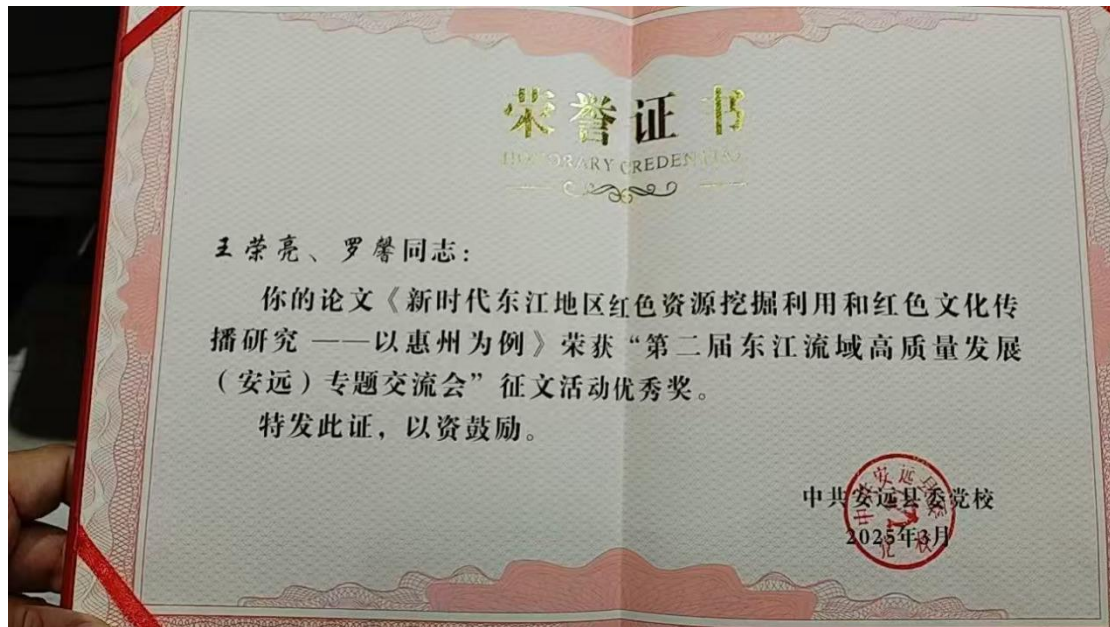 荣誉证书
HONORARY CREDENTIAL
王荣亮、罗馨同志：
你的论文《新时代东江地区红色资源挖掘利用和红色文化传
播研究 ——以惠州为例》荣获“第二届东江流域高质量发展
（安远）专题交流会”征文活动优秀奖。
特发此证，以资鼓励。
中共安远县委党校
2025年3月
中共安远县委党校